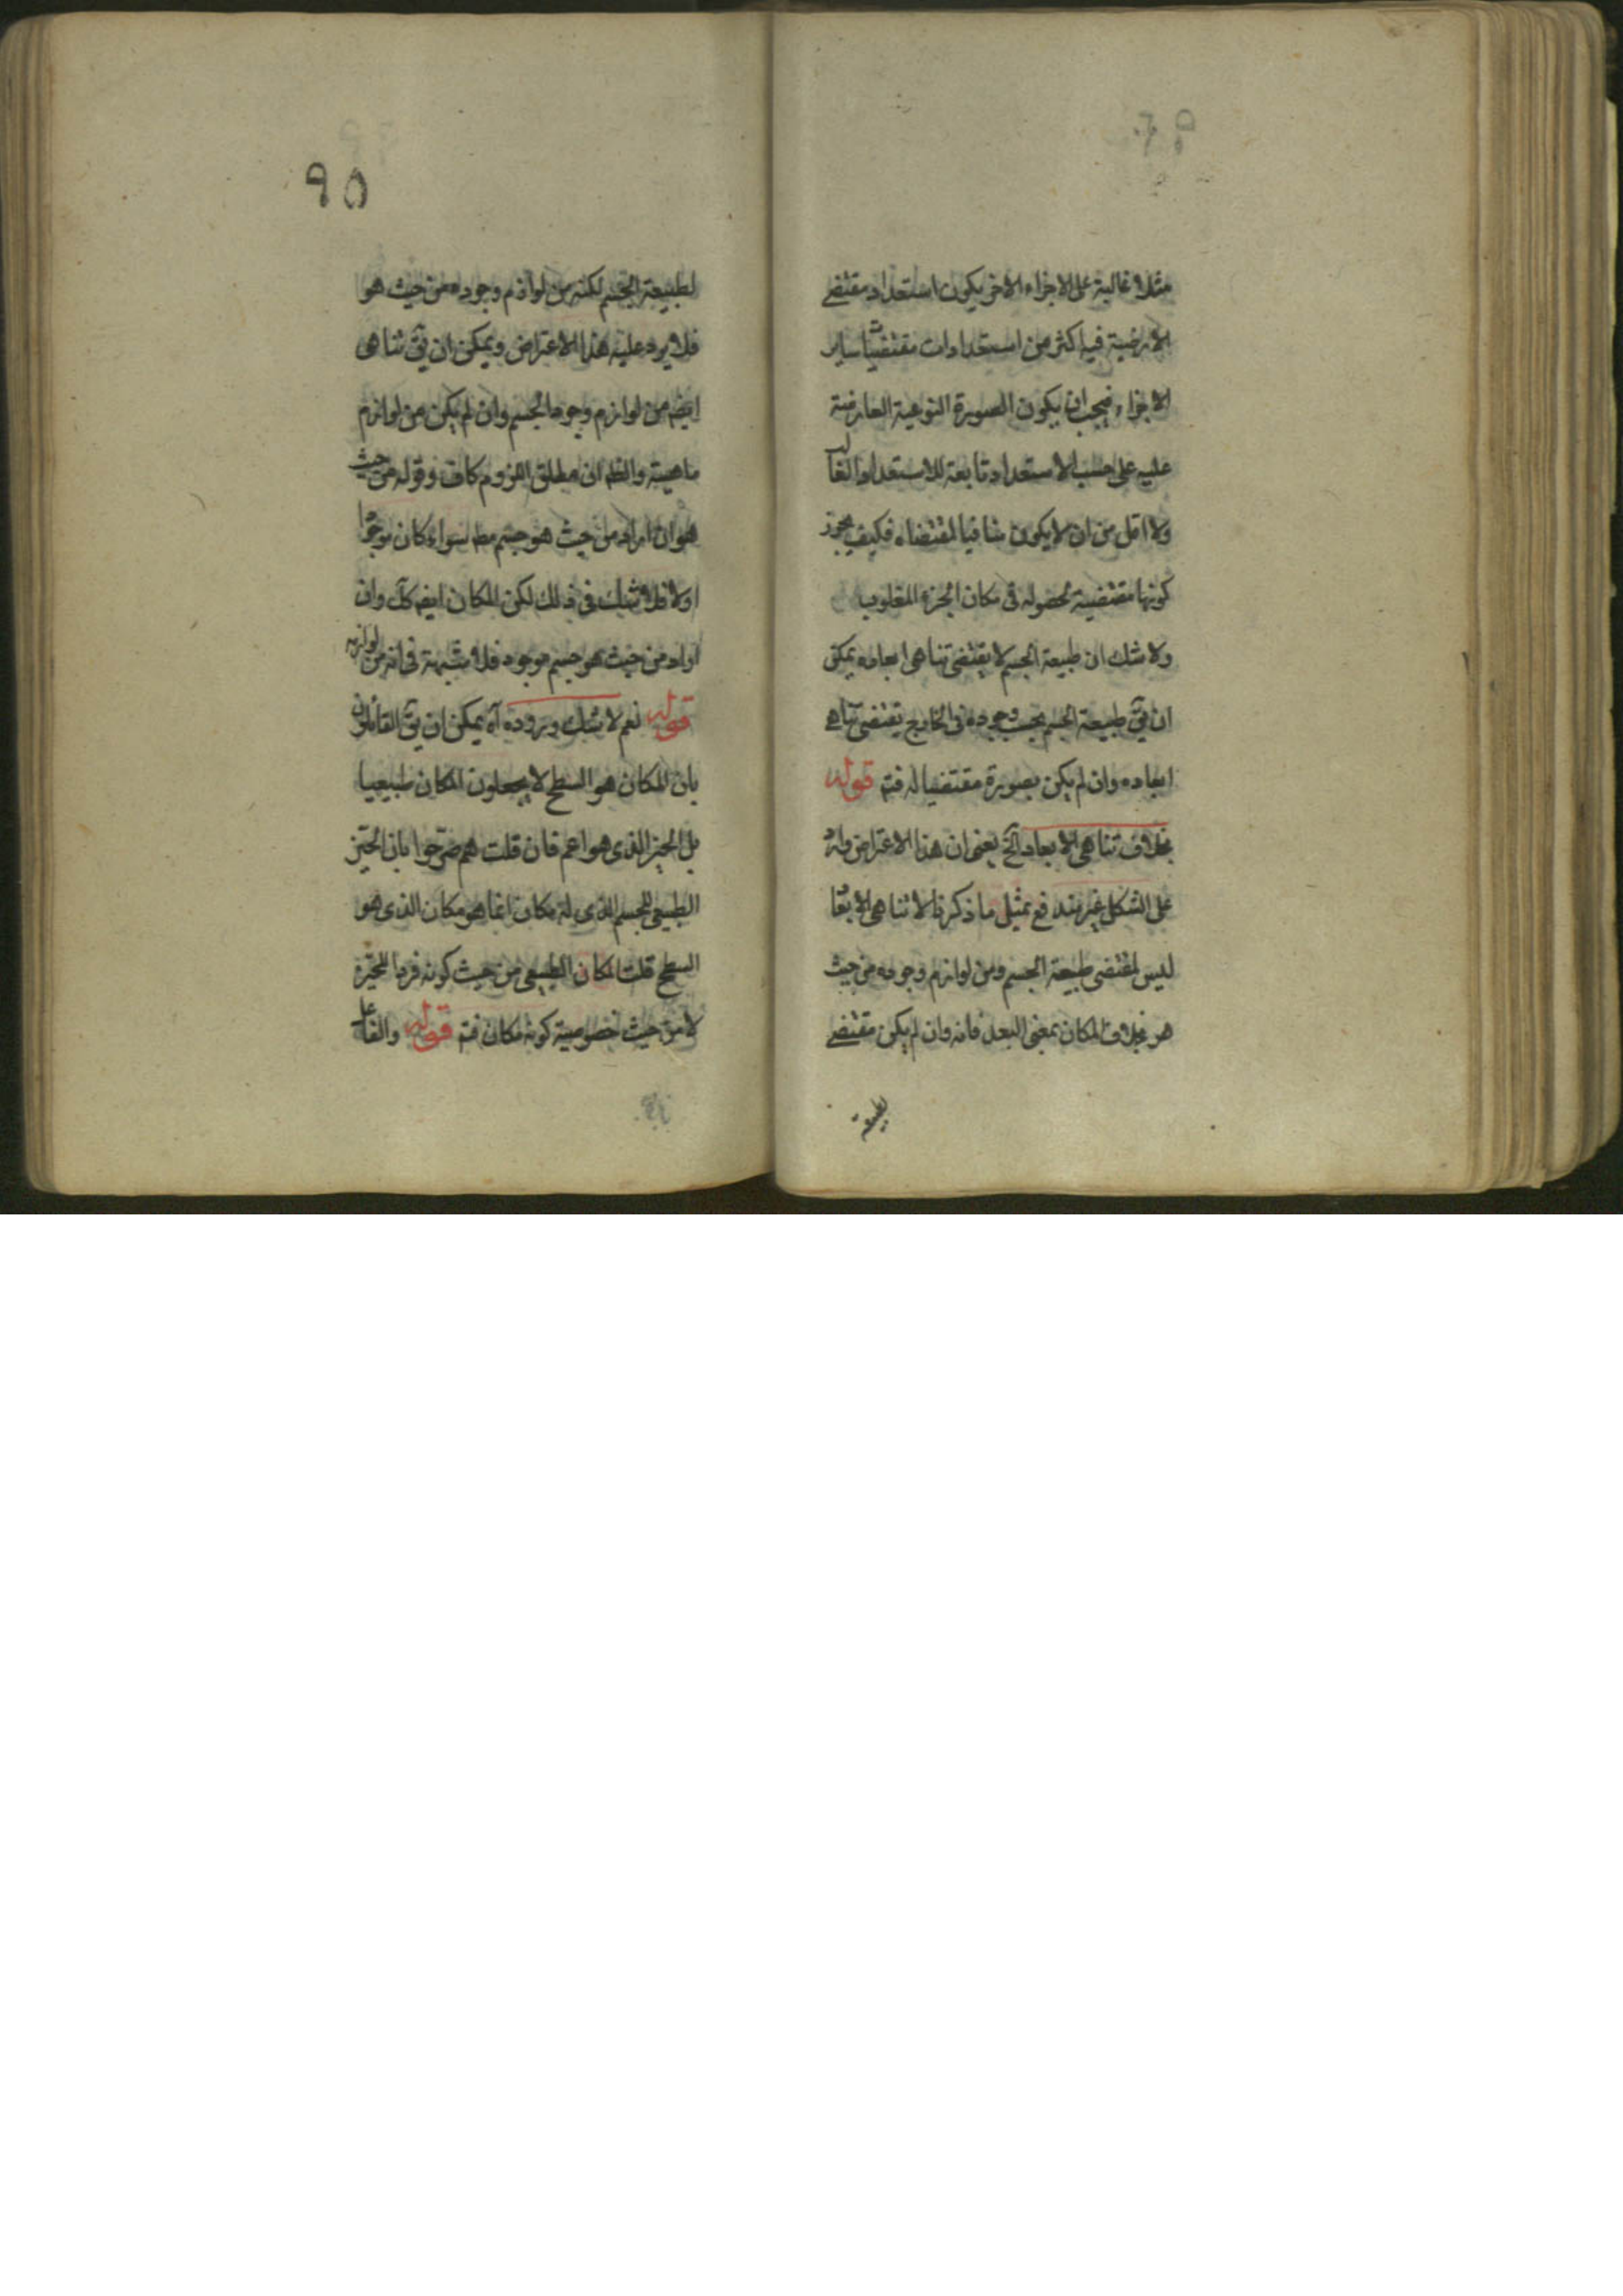 مثلا غالبة على الاجزاء الاخر يكون استعداد مقتضى
الارضية فيه اكثر من استعدادات مقتضيات ساير
الاجزاء فيجب ان يكون الصورة النوعية العارضة
عليه على حسب الاستعداد تابعة للاستعداد الغالب
ولا اقل من ان لا يكون منافيا لمقتضاه فكيف يجوز
كونها مقتضية لحصوله في مكان الجزء المغلوب
ولا شك ان طبيعة الجسم لا يقتضى تناهى ابعاده يمكن
ان يق طبيعة الجسم بحسب وجوده في الخارج يقتضى تناهى
ابعاده وان لم يكن بصورة مقتضيا له فتم قوله
بخلاف تناهى الابعاد الخ يعنى ان هذا الاعتراض وارد
على الشكل غير مندفع بمثل ما ذكر لان تناهى الابعاد
ليس لمقتضى طبيعة الجسم ومن لوازم وجوده من حيث
هو بخلاف المكان بمعنى البعد فانه وان لم يكن مقتضى
لطبيعة
٩٥
لطبيعة الجسم لكنه من لوازم وجوده من حيث هو
فلا يرد عليه هذا الاعتراض ويمكن ان يق تناهى
ايضا من لوازم وجود الجسم وان لم يكن من لوازم
ماهيته والظ ان مطلق اللزوم كاف وقوله من حيث
هو ان اراد من حيث هو جسم مط سواء كان موجودا
اولا فلا شك في ذلك لكن المكان ايضا كك وان
اراد من حيث هو جسم موجود فلا شبهة في انه من لوازمه
قوله نعم لا شك وروده آه يمكن ان يق القائلون
بان المكان هو السطح لا يجعلون المكان طبيعيا
بل الحيز الذى هو اعم فان قلت هم صرحوا بان الحيز
الطبيعى للجسم الذى له مكان انما هو مكان الذى هو
السطح قلت المكان الطبيعى من حيث كونه فردا للحيز
لا من حيث خصوصية كونه مكان فتم قوله والفاعل